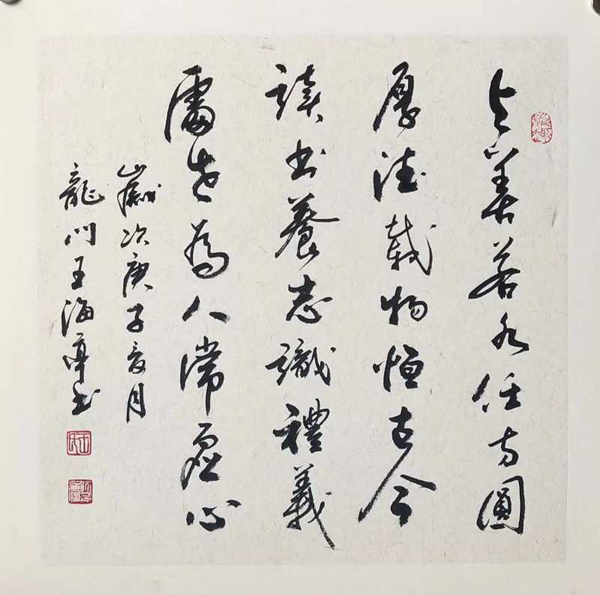 上善若水任方圓
厚德載物恒古今
讀書養志識禮義
處世為人常虛心
歲次庚子夏月
龍門王海軍書